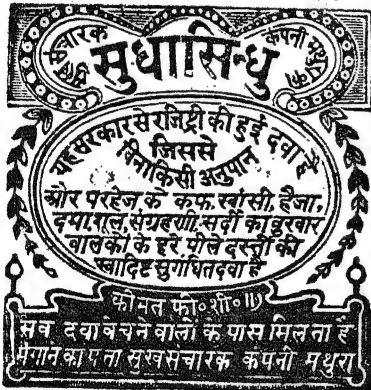 सुखसंचारक कंपनी मथुरा का
सुधासिन्धु
यह सरकार से रजिष्ट्री की हुई दवा है
जिससे
बिना किसी अनुपान
और परहेज के कफ, खांसी, हैजा,
दमा, शूल, संग्रहणी, सर्दी का बुखार
बालकों के हरे, पीले दस्तों की
स्वादिष्ट सुगंधित दवा है
कीमत फी॰ शी॰ ॥)
सब दवा बेचने वालों के पास मिलता है
मंगाने का पता सुखसंचारक कंपनी मथुरा